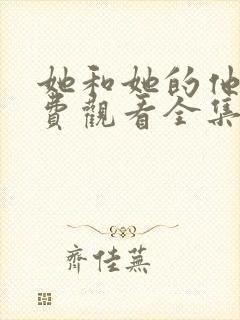 她和她的他
費觀看全集
齊佳蕪